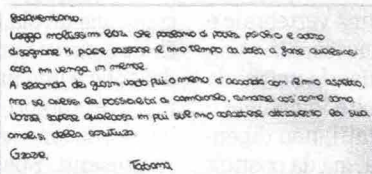 frequentano.
Leggo moltissimi libri che parlano di
disegnare. Mi piace passare il mio tempo da sola a fare qualsiasi
cosa mi venga in mente.
A seconda dei giorni vado più o meno d'accordo con il mio aspetto,
ma se avessi la possibilità di cambiarlo, rimarrei così come sono.
Vorrei sapere qualcosa in più sul mio carattere attraverso la sua
analisi della scrittura.
Grazie.